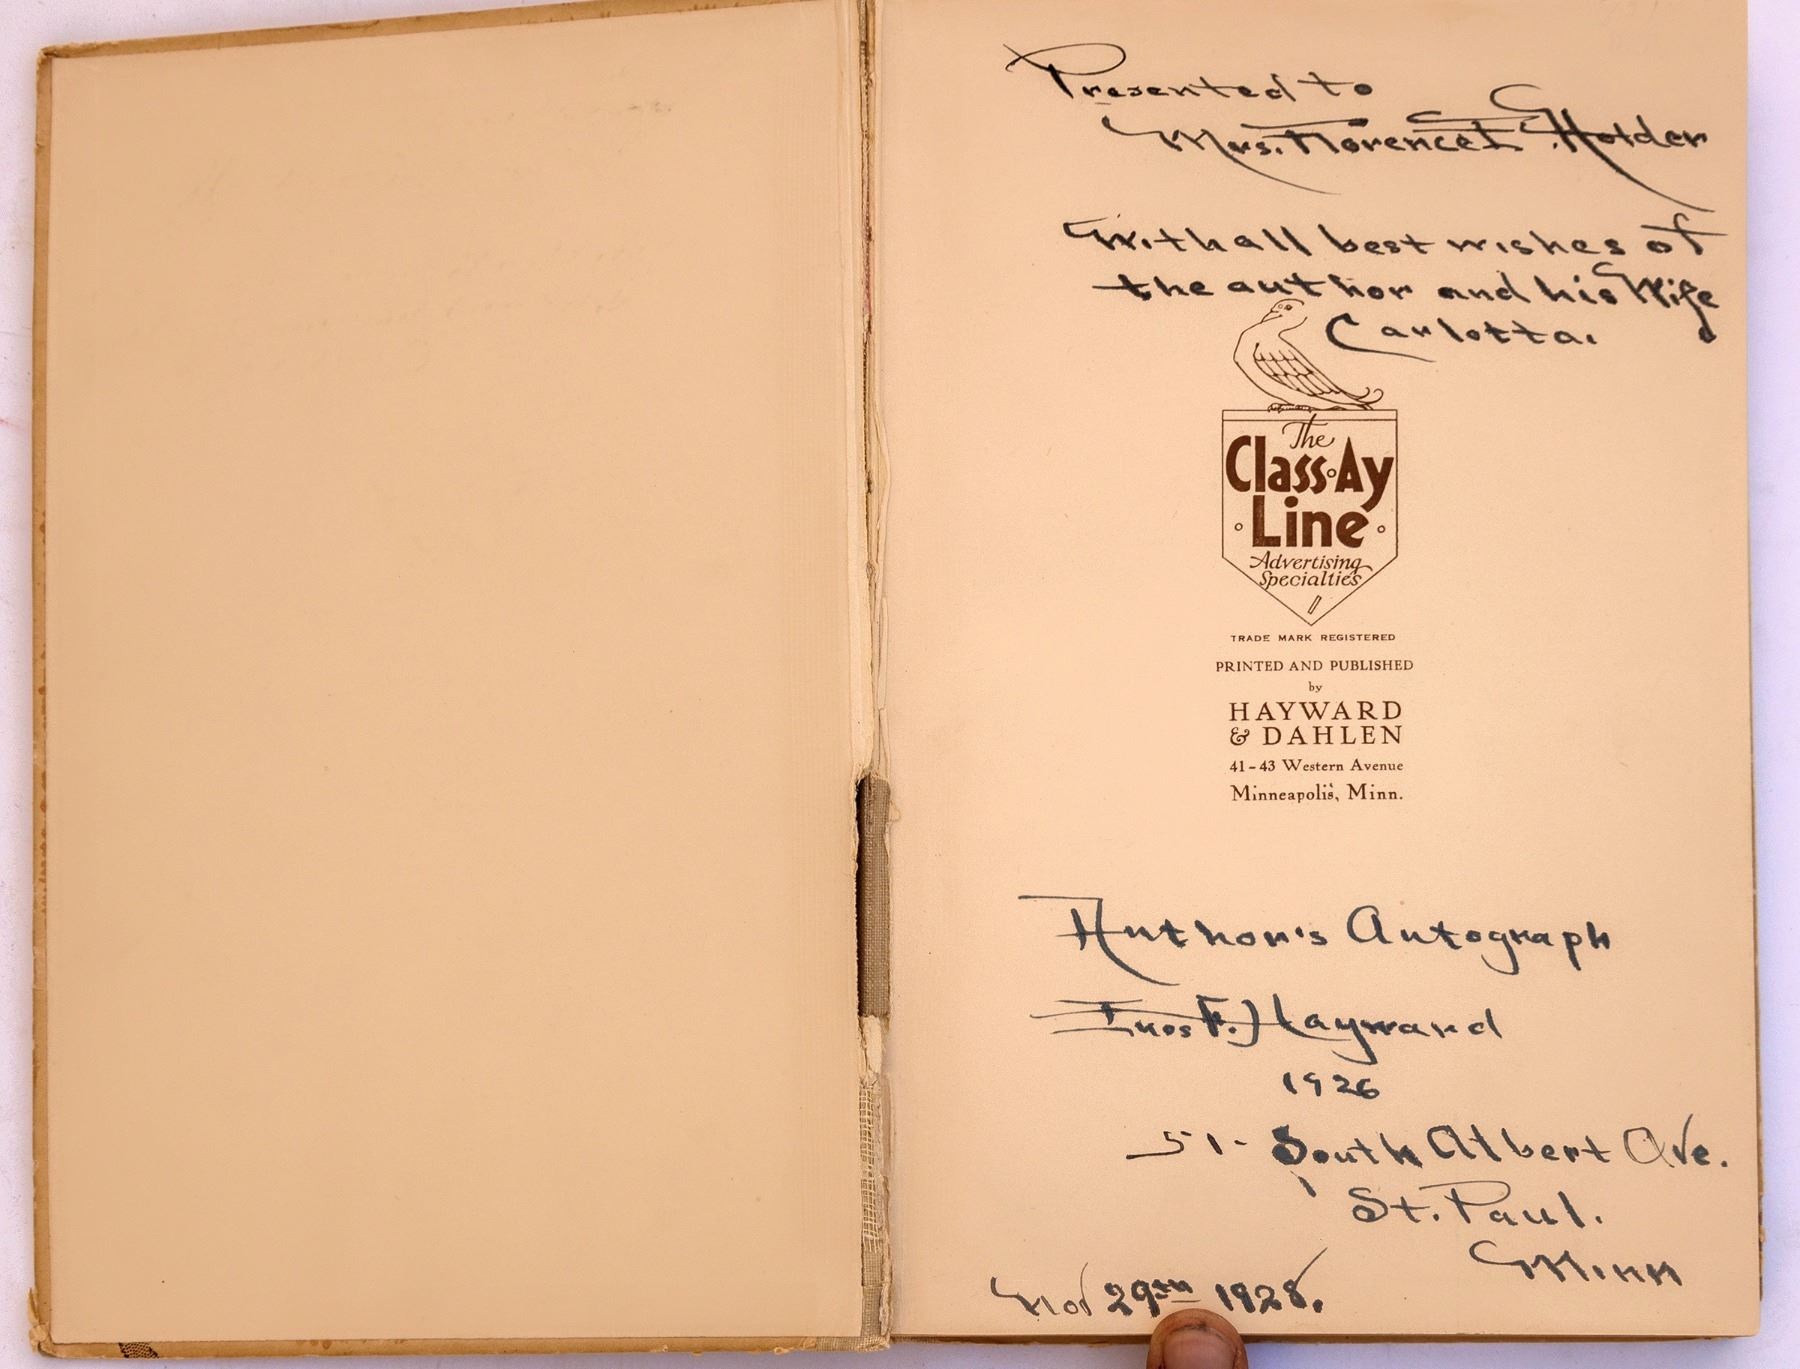 Presented to
Mrs. Florence E. Holder
With all best wishes of
the author and his Wife
Carlotta.
The
Class-Ay
Line
Advertising
Specialties
TRADE MARK REGISTERED
PRINTED AND PUBLISHED
by
HAYWARD
& DAHLEN
41-43 Western Avenue
Minneapolis, Minn.
Author's Autograph
Enos F. Hayward
1926
51- South Albert Ave.
St. Paul.
Minn
Nov 29th 1928.